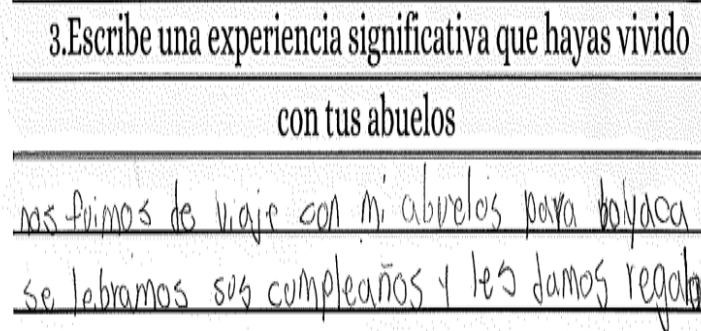 3.Escribe una experiencia significativa que hayas vivido
con tus abuelos
nos fuimos de viaje con mi abuelos para boyaca
se lebramos sus cumpleaños y les damos regalo